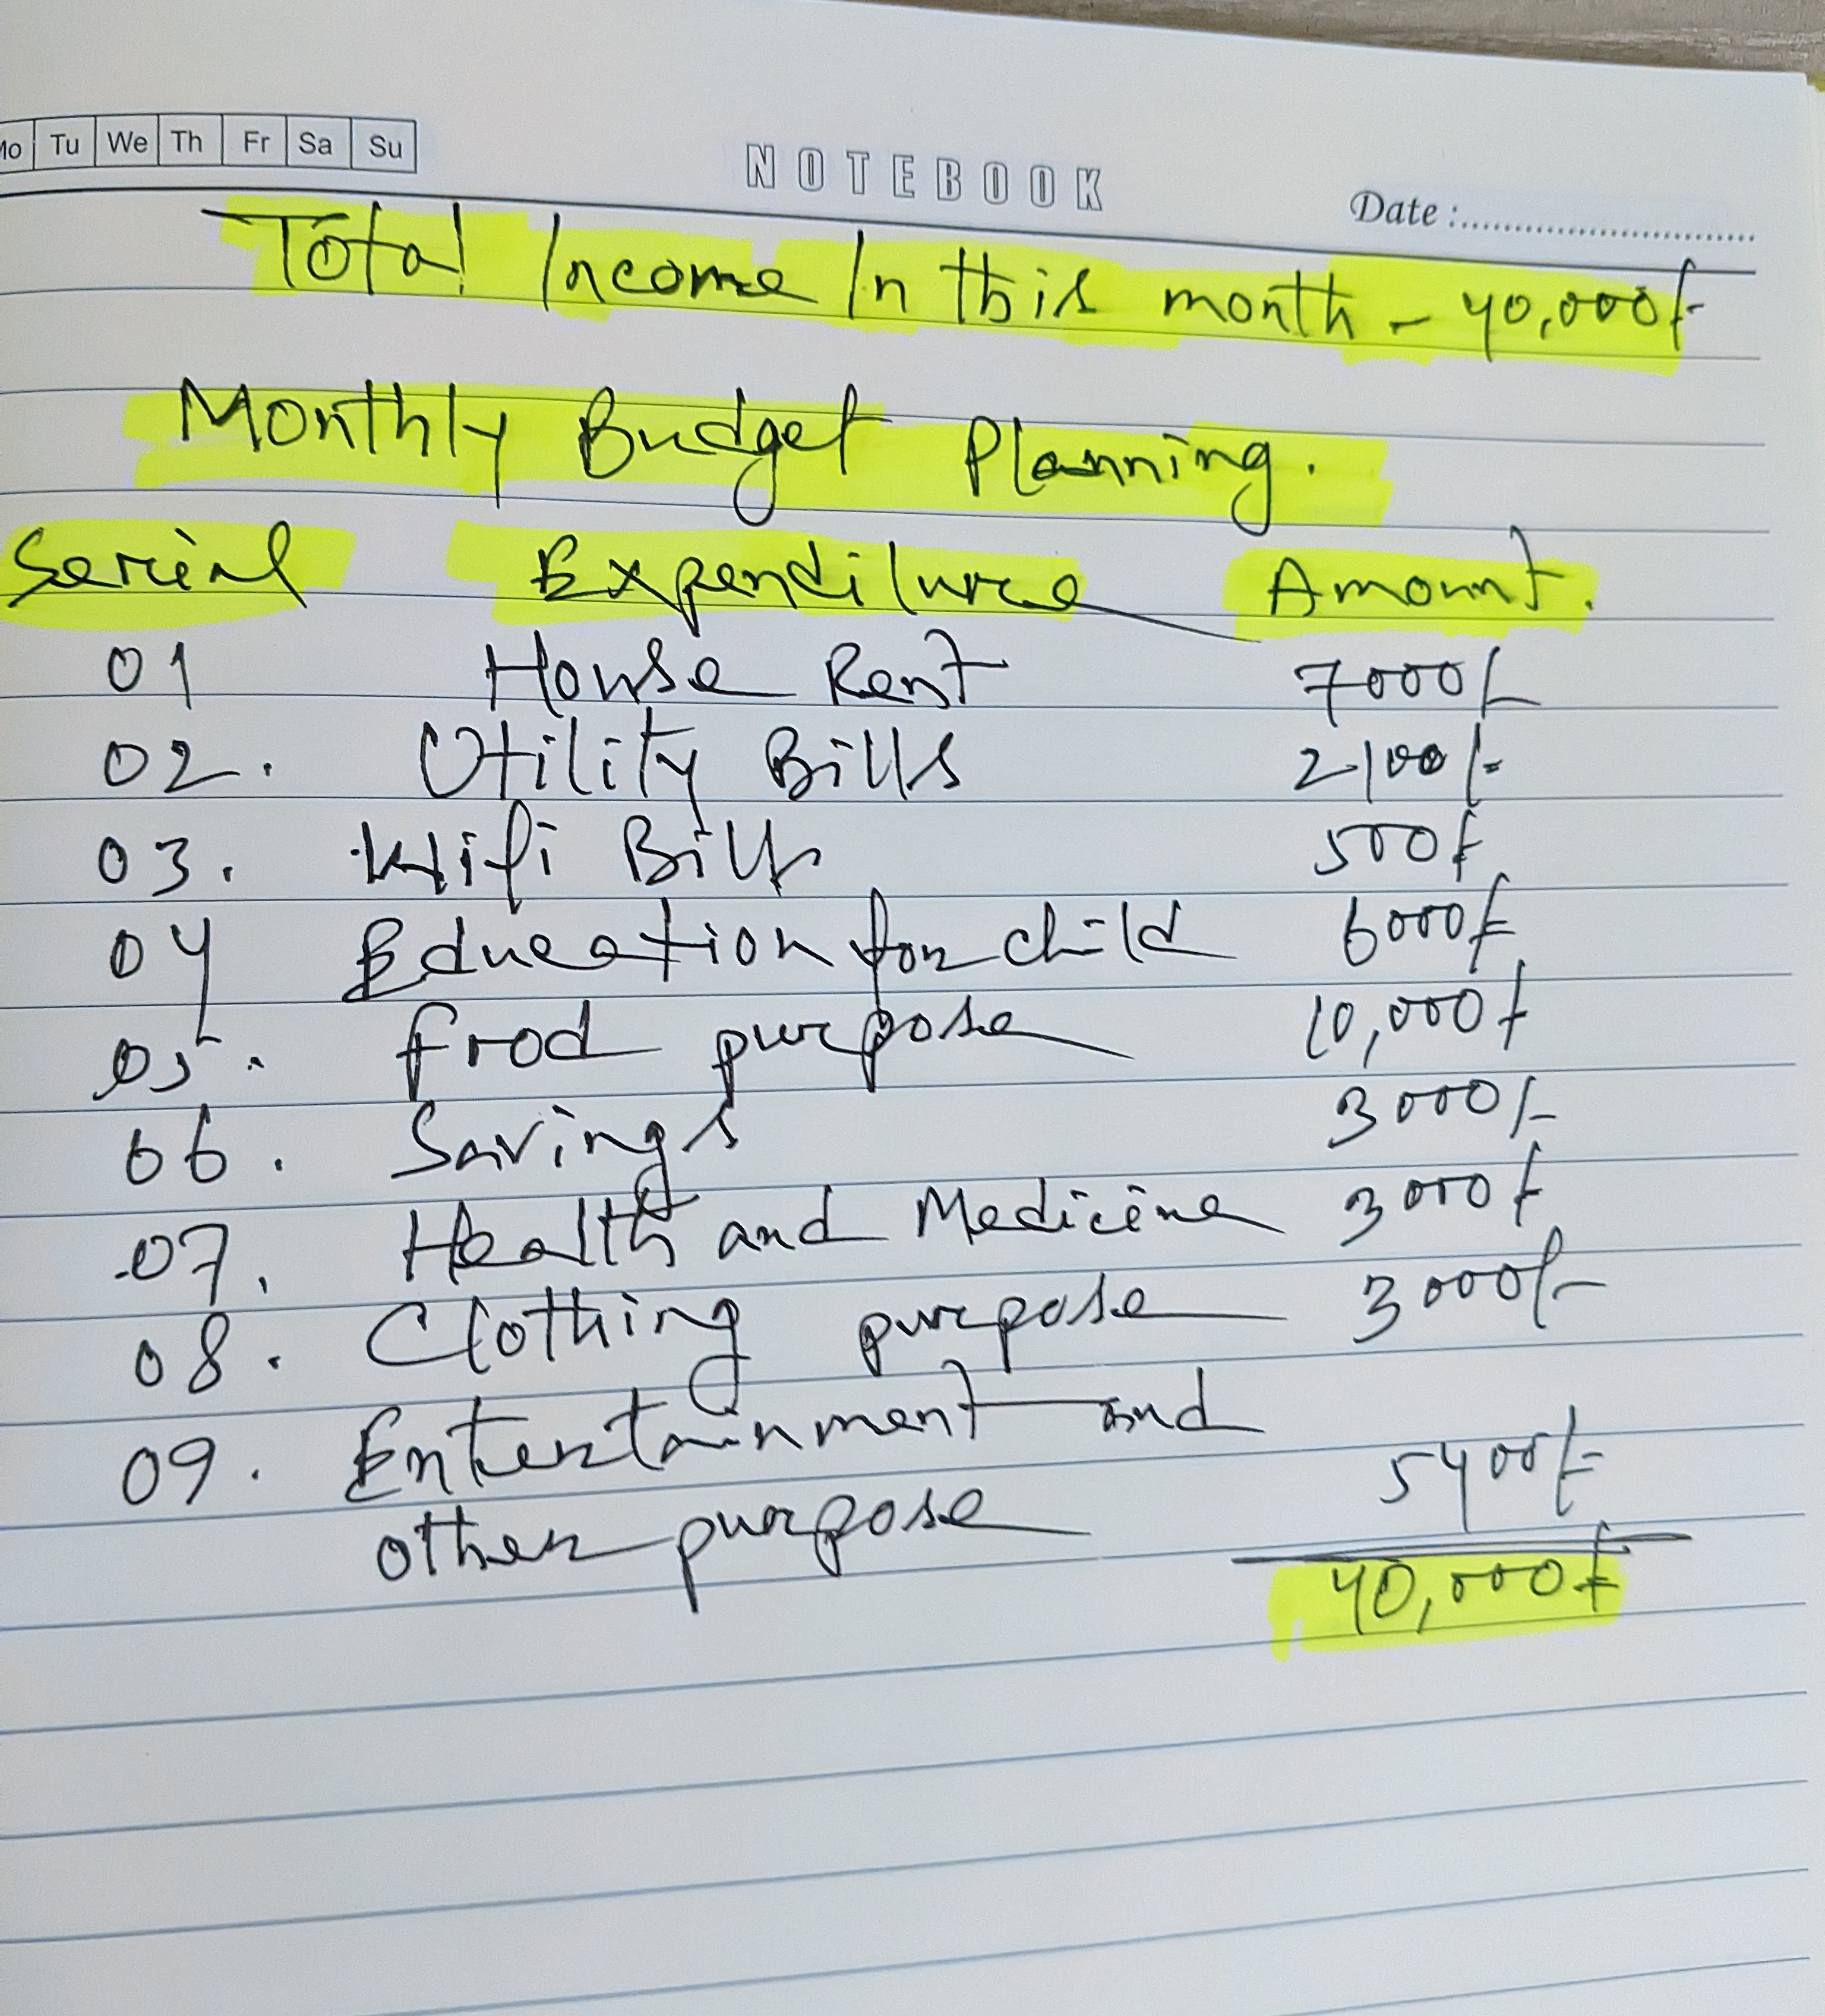 Mo Tu We Th Fr Sa Su
NOTEBOOK
Date :
Total Income In this month - 40,000/-
Monthly Budget Planning.
Serial Expenditure Amount.
01 House Rent 7000/-
02. Utility Bills 2100/-
03. Wifi Bills 500/-
04 Education for child 6000/-
05. Food purpose 10,000/-
06. Savings 3000/-
07. Health and Medicine 3000/-
08. Clothing purpose 3000/-
09. Entertainment and
other purpose 5400/-
40,000/-